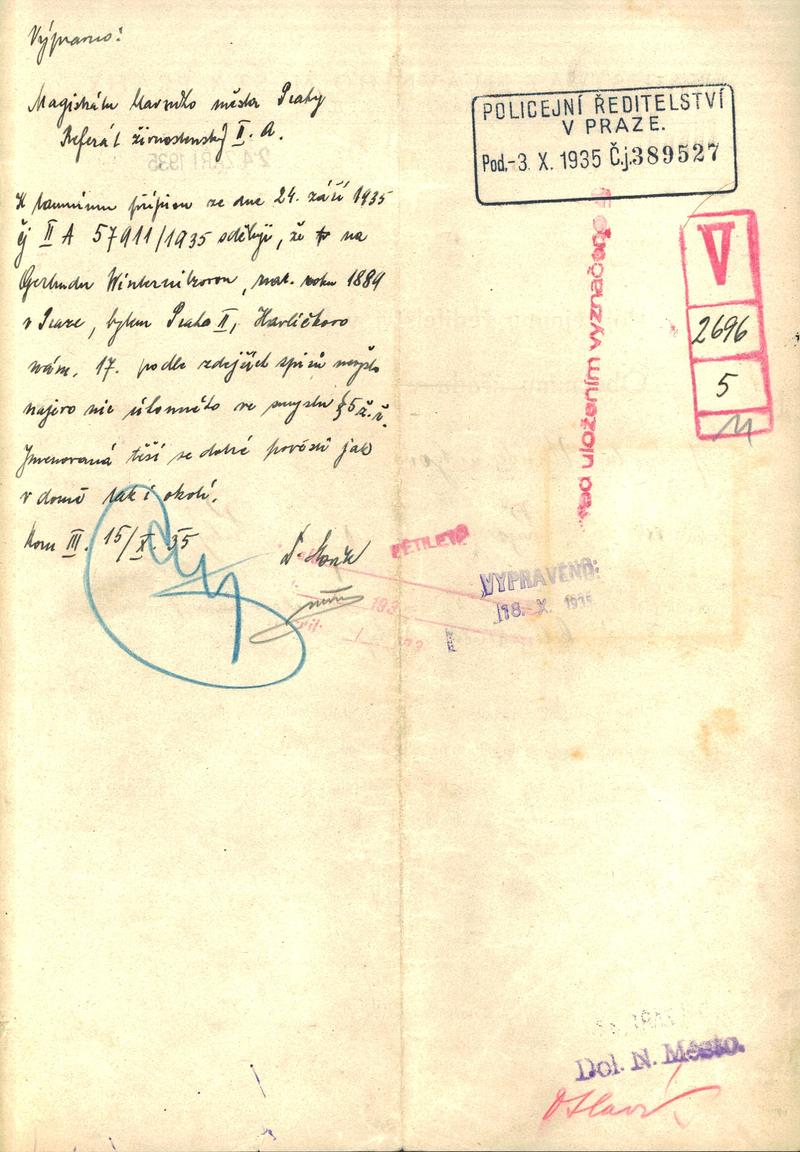 Výpravno:
Magistrátu hlavního města Prahy
Referát živnostenský II. A.
K tamnímu přípisu ze dne 24. září 1935
čj II A 57911/1935 sděluji, že na
Gertrudu Winternitzovou, nar. roku 1889
v Praze, bytem Praha II, Havlíčkovo
nám. 17. podle zdejších spisů nevyšlo
najevo nic úhonného ve smyslu § 5 ž. ř.
Jmenovaná těší se dobré pověsti jak
v domě tak i okolí.
Kom III. 15/X. 35
POLICEJNÍ ŘEDITELSTVÍ
V PRAZE.
Pod.-3. X. 1935 Č.j.389527
uložením vyznačeno
V
2696
5
PĚTILETÁ
VYPRAVENO:
18. X. 1935
Dol. N. Město.